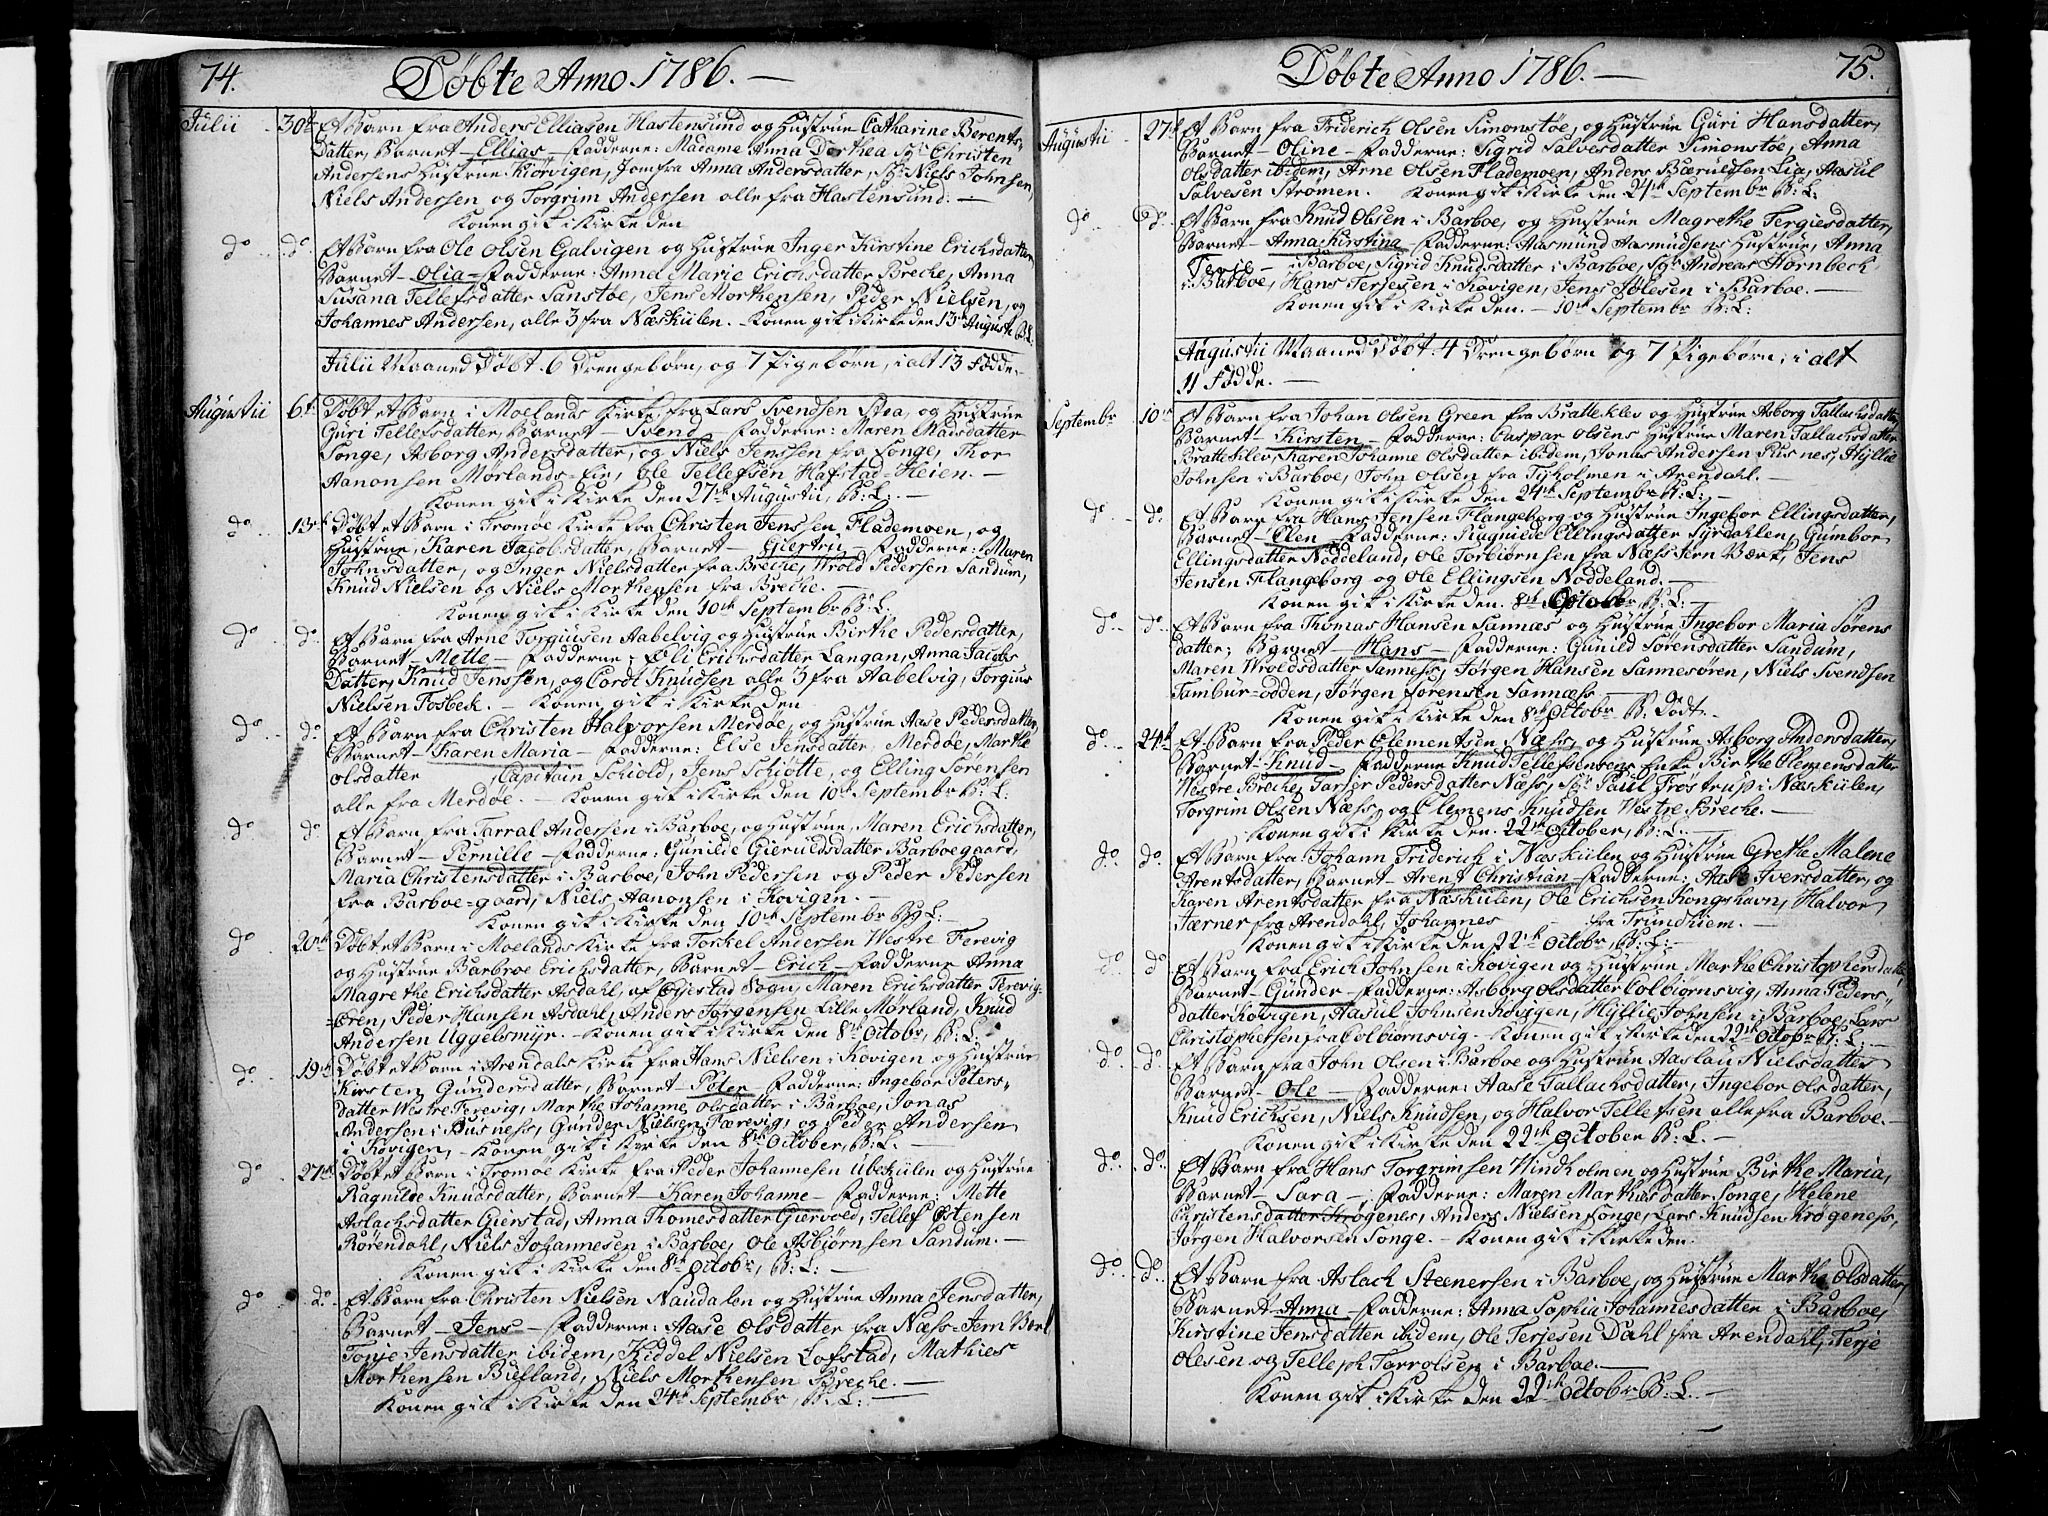 74. Döbte Anno 1786. —
Julii 30te Et Barn fra Anders Elliasen Hastensund og Hustrue Catharine Berents-
Datter, Barnet — Ellias — Fadderne: Madame Anna Dorthea Sr Christen
Andersens Hustrue Kiörvigen, Jomfru Anna Andersdatter, Sr Niels Johnsen,
Niels Andersen og Torgrim Andersen alle fra Hastensund. —
Konen gik i Kirke den
do do Et Barn fra Ole Olsen Galvigen og Hustrue Inger Kirstine Erichsdatter,
Barnet — Olia — Fadderne: Anna Marie Erichsdatter Breche, Anna
Susana Tellefsdatter Sanstöe, Jens Morthensen, Peder Nielsen, og
Johannes Andersen, alle 3 fra Næskülen. — Konen gik i Kirke den 13de Augusti B:L:
Julii Maaned Döbt 6 Drengebörn, og 7 Pigebörn, i alt 13 Födde. —
Augustii 6te Döbt et Barn i Moelands Kirke fra Lars Svendsen Stea, og Hustrue
Guri Tellefsdatter, Barnet — Svend — Fadderne: Maren Madsdatter
Songe, Asborg Andersdatter, og Niels Jenssen fra Songe, Thor
Aanonsen Mörlands-Eie, Ole Tellefsen Hafstad-Heien. —
Konen gik i Kirke den 27de Augustii, B:L: —
do 13de Döbt et Barn i Tromöe Kirke fra Christen Jenssen Flademoen, og
Hustrue, Karen Jacobsdatter, Barnet — Giertru — Fadderne: Maren
Johnsdatter, og Inger Nielsdatter fra Breche, Wrold Pedersen Sandum,
Knud Nielsen og Niels Morthensen fra Breche. —
Konen gik i Kirke den 10de Septembr B:L:
do do Et Barn fra Arne Torgiusen Aabelvig og Hustrue Birthe Pedersdatter,
Barnet — Mette — Fadderne: Oli Erichsdatter Langan, Anna Jacobs
Datter, Knud Jenssen, og Cordt Knudsen alle 3 fra Aabelvig, Torgius
Nielsen Fosbek. — Konen gik i Kirke den
do do Et Barn fra Christen Halvorsen Merdöe, og Hustrue Aase Pedersdatter,
Barnet — Karen Maria — Fadderne: Else Jensdatter, Merdöe, Marthe
Olsdatter , Capitain Schiold, Jens Schiötte, og Elling Sörensen
alle fra Merdöe. — Konen gik i Kirke den 10de Septembr B:L:
do do Et Barn, fra Tarral Andersen i Barboe, og Hustrue, Maren Erichsdatter,
Barnet — Pernille — Fadderne: Gunilde Gieruldsdatter Barboegaard,
Maria Christensdatter i Barboe, John Pedersen og Peder Pedersen
fra Barboe-gaard, Niels Aanonsen i Kövigen. —
Konen gik i Kirke den 10de Septembr B:L: —
do 20de Döbt et Barn i Moelands Kirke fra Torkel Andersen Westre Ferevig
og Hustrue Barbroe Erichsdatter, Barnet — Erich — Fadderne Anna
Magrethe Erichsdatter Asdahl, af Öyestad Sogn, Maren Erichsdatter Ferevig-
Ören, Peder Hansen Asdahl, Anders Jörgensen Lille Mörland, Knud
Andersen Uggelsmyr. — Konen gik i Kirke den 8de Octobr, B:L:
do 19de Döbt et Barn i Arendals Kirke fra Hans Nielsen i Kövigen og Hustrue
Kirsten Gundersdatter, Barnet — Peter — Fadderne: Ingebor Peters-
datter Westre Ferevig, Marthe Johanne Olsdatter i Barboe, Jonas
Andersen i Susness, Gunder Nielsen Færevig, og Peder Andersen
i Kövigen, — Konen gik i Kirke den 8de October, B:L: —
do 27de Döbt et Barn i Tromöe Kirke fra Peder Johannesen Ubekülen og Hustrue
Ragnilde Knudsdatter, Barnet — Karen Johanne — Fadderne: Mette
Aslachsdatter Gierstad, Anna Thomesdatter Giervold, Tellef Östensen
Rörendahl, Niels Johannesen i Barboe, Ole Asbiörnsen Sandum. —
Konen gik i Kirke den 8de Octobr, B:L: —
do do Et Barn fra Christen Nielsen Naudalen og Hustrue Anna Jensdatter,
Barnet — Jens — Fadderne: Aase Olsdatter fra Næss-Jern Verk
Tonje Jensdatter ibidem, Kiddel Nielsen Lofstad, Mathies
Morthensen Bieland, Niels Morthensen Breche. —
Konen gik i Kirke den 24de Septembr, B:L: —
Döbte Anno 1786. — 75.
Augustii 27de Et Barn fra Friderich Olsen Simonstöe, og Hustrue Guri Hansdatter,
Barnet — Oline — Fadderne: Sigrid Salvesdatter Simonstöe, Anna
Olsdatter ibidem, Arne Olsen Flademoen, Anders Bæruldsen Lia, Aasul
Salvesen Strömen. Konen gik i Kirke den 24de Septembr B:L:
do do Et Barn fra Knud Olsen i Barboe, og Hustrue Magrethe Tergiesdatter,
Barnet — Anna Kirstina — Fadderne: Aasmund Aasmudsens Hustrue, Anna
Terje — i Barboe, Sigrid Knudsdatter i Barboe, Sr Andreas Hornbeck
i Barboe, Hans Terjesen i Kövigen, Jens Solesen i Barboe. —
Konen gik i Kirke den. — 10de Septembr B:L:
Augustii Maaned Döbt. 4 Drengebörn og 7 Pigebörn, i alt
11 Födde. —
Septembr 10de Et Barn fra Johan Olsen Green fra Bratteklev og Hustrue Asborg Tallachsdatter
Barnet — Kirsten — Fadderne: Caspar Olsens Hustrue Maren Tallachsdatter
Bratteklev, Karen Johanne Olsdatter ibidem, Jonas Andersen Susnes, Hyllie
Johnsen i Barboe, John Olsen fra Tyholmen i Arendahl. —
Konen gik i Kirke den 24de Septembr B:L: —
do do Et Barn fra Hans Jensen Flangeborg og Hustrue Ingebor Ellingsdatter,
Barnet — Elen — Fadderne: Ragnilde Ellingsdatter Syrdahlen, Gumbor
Ellingsdatter Noddeland, Ole Torbiörnsen fra Næss Jern Værk, Jens
Jensen Flangeborg og Ole Ellingsen Noddeland. —
Konen gik i Kirke den. 8de October, B:L: —
do do Et Barn fra Thomas Hansen Sannæs og Hustrue Ingebor Maria Sörens
datter; Barnet — Hans — Fadderne: Gunild Sörensdatter Sandum,
Maren Wroldsdatter Sanness, Jörgen Hansen Sannesören, Niels Svendsen
Tambur-odden, Jörgen Sörensen Sannæss
Konen gik i Kirke den 8de Octobr B: Dödt. —
do 24de Et Barn fra Peder Clementsen Næss, og Hustrue Asborg Andersdatter,
Barnet — Knud — Fadderne Knud Tellefsens Enke Birthe Clemensdatter
Westre Breche, Tarjer Pedersdatter Næss, Sr Paul Fröstrup i Næskülen,
Torgrim Olsen Næss, og Clemens Knudsen Westre Breche. —
Konen gik i Kirke den. 22de October, B:L: —
do do Et Barn fra Johann Friderich i Næskülen og Hustrue Grethe Malene
Arentsdatter, Barnet — Arent Christian — Fadderne: Aase Iversdatter, og
Karen Arentsdatter fra Næskülen, Ole Erichsen Kongshavn, Halvor
Færner fra Arendahl, Johannes fra Trundhiem. —
Konen gik i Kirke den 22de Octobr, B:L: —
do do Et Barn fra Erich Johnsen i Kövigen og Hustrue Marthe Christophersdatter,
Barnet — Gunder — Fadderne: Asborg Olsdatter Colbiornsvig, Anna Peders-
datter Kövigen, Aasul Johnsen Kövigen, Hyllie Johnsen i Barboe, Lars
Christophersen fra Colbiornsvig — Konen gik i Kirke den 22de Octobr B:L: —
do do Et Barn fra John Olsen i Barboe og Hustrue Aaslau Nielsdatter
Barnet — Ole — Fadderne: Aase Tallachsdatter, Ingebor Olsdatter,
Knud Erichsen, Niels Knudsen, og Halvor Tellefsen alle fra Barboe. —
Konen gik i Kirke den 22de October B:L: —
do do Et Barn fra Hans Torgrimsen Windholmen og Hustrue Birthe Maria,
Barnet — Sara — Fadderne: Maren Marthesdatter Songe, Helene
Christensdatter Krögenes, Anders Nielsen Songe, Lars Knudsen Krögeness,
Jörgen Halvorsen Songe. — Konen gik i Kirke den
do do Et Barn fra Aslach Steenersen i Barboe, og Hustrue Marthe Olsdatter,
Barnet — Anna — Fadderne: Anna Sophia Johannesdatter i Barboe,
Kirstine Jensdatter ibidem, Ole Terjesen Dahl fra Arendahl, Terje
Olesen og Telleph Tarrolsen i Barboe. —
Konen gik i Kirke den 22de Octobr B:L: —